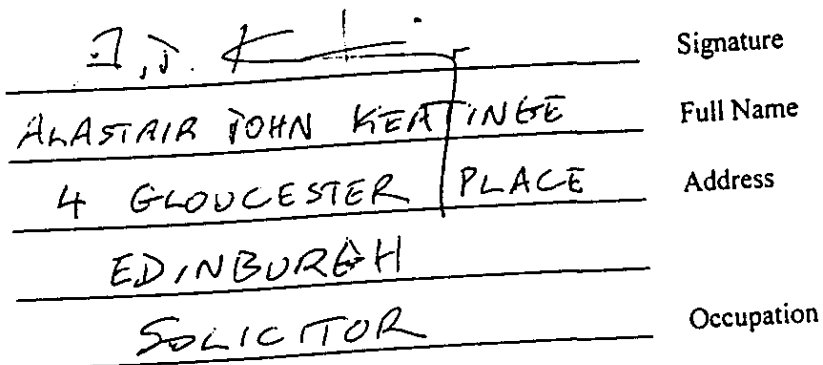 A.J. K Signature
ALASTAIR JOHN KEATINGE Full Name
4 GLOUCESTER PLACE Address
EDINBURGH
SOLICITOR Occupation